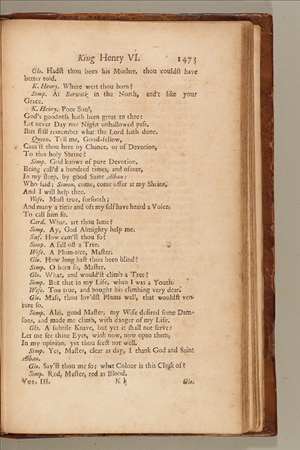 King Henry VI. 1473
Glo. Hadſt thou been his Mother, thou couldſt have
better told.
K. Henry. Where wert thou born?
Simp. At Berwick, in the North, and't like your
Grace.
K. Henry. Poor Soul,
God's goodneſs hath been great to thee:
Let never Day nor Night unhallowed paſs,
But ſtill remember what the Lord hath done.
Queen. Tell me, Good-fellow,
Cam'ſt thou here by Chance, or of Devotion,
To this holy Shrine?
Simp. God knows of pure Devotion,
Being call'd a hundred times, and oftner,
In my ſleep, by good Saint Alban:
Who ſaid; Simon, come, come offer at my Shrine,
And I will help thee.
Wife. Moſt true, forſooth;
And many a time and oft my ſelf have heard a Voice,
To call him ſo.
Card. What, art thou lame?
Simp. Ay, God Almighty help me.
Suf. How cam'ſt thou ſo?
Simp. A fall off a Tree.
Wife. A Plum-tree, Maſter.
Glo. How long haſt thou been blind?
Simp. O born ſo, Maſter.
Glo. What, and wouldſt climb a Tree?
Simp. But that in my Life, when I was a Youth.
Wife. Too true, and bought his climbing very dear.
Glo. Maſs, thou lov'dſt Plums well, that wouldſt ven-
ture ſo.
Simp. Alas, good Maſter, my Wife deſired ſome Dam-
ſons, and made me climb, with danger of my Life.
Glo. A ſubtile Knave, but yet it ſhall not ſerve:
Let me ſee thine Eyes, wink now, now open them;
In my opinion, yet thou ſeeſt not well.
Simp. Yes, Maſter, clear as day; I thank God and Saint
Alban.
Glo. Say'ſt thou me ſo; what Colour is this Cloak of?
Simp. Red, Maſter, red as Blood.
Vol. III. K k Glo.